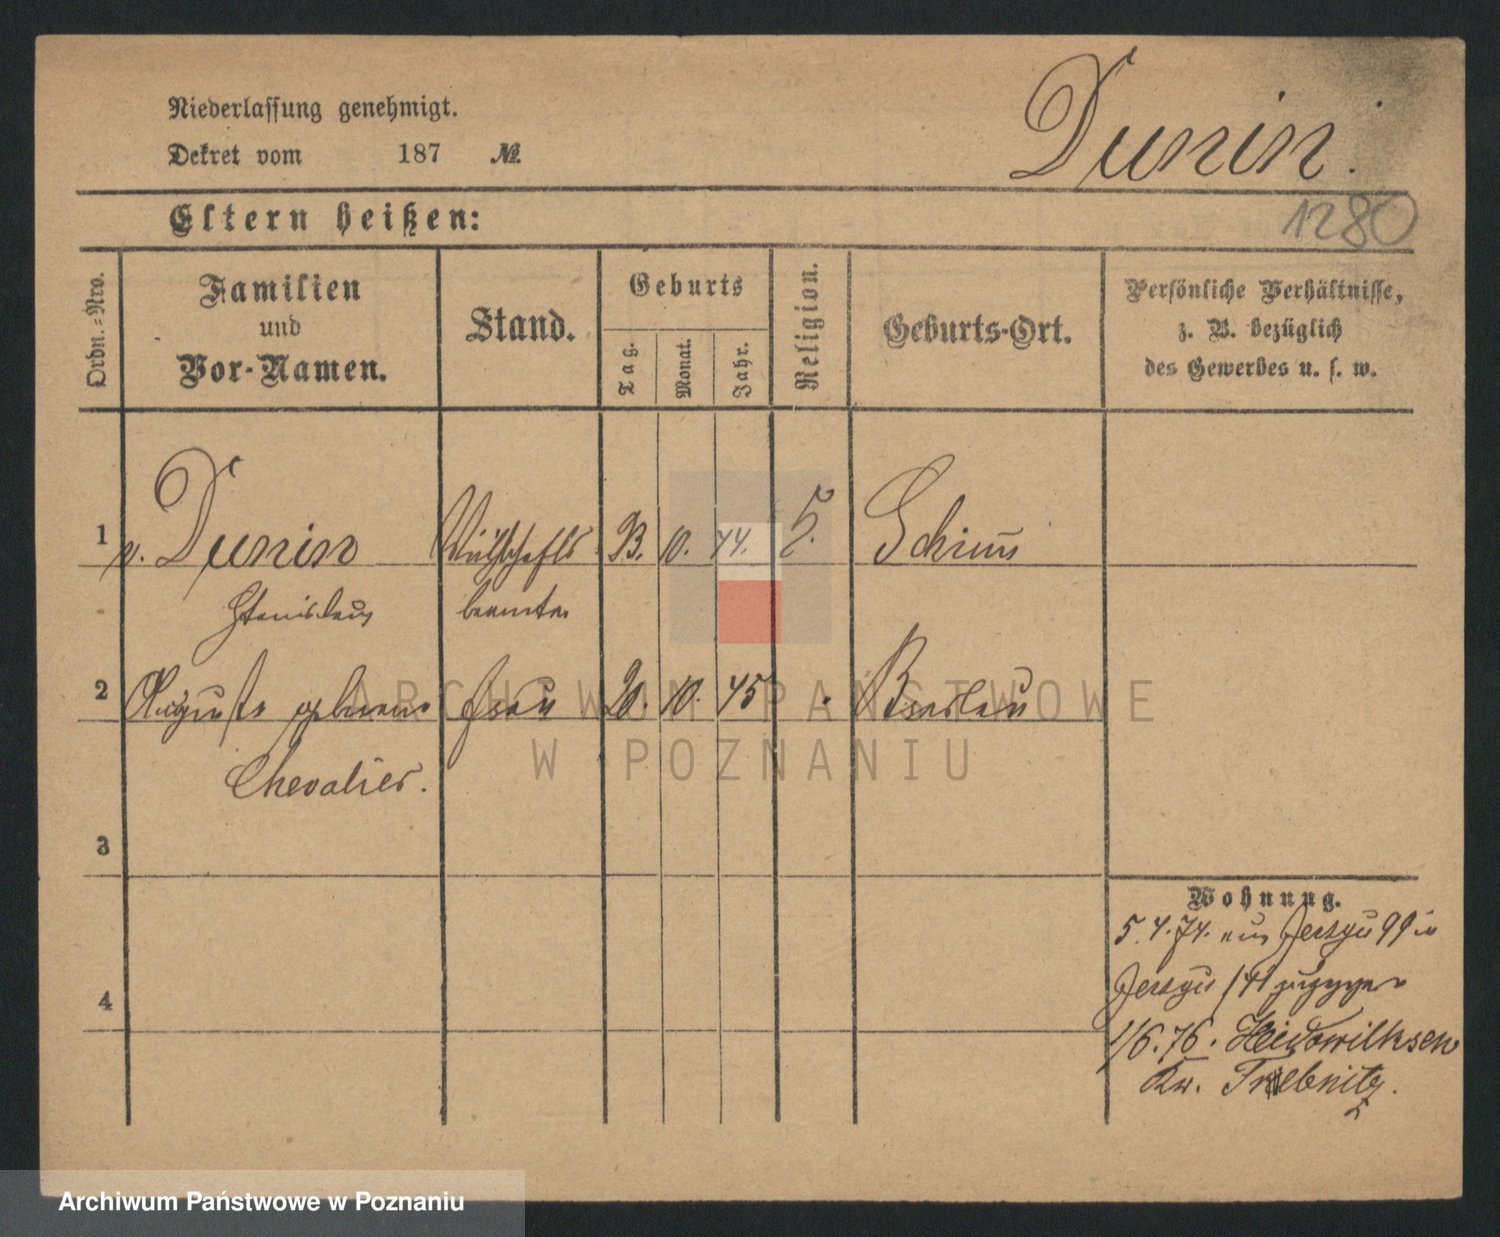 Niederlassung genehmigt.
Dekret vom 187 №
Dunin.
1280
Eltern heißen:
Ordn.-Nro.
Familien
und
Vor-Namen.
Stand.
Geburts
Tag.
Monat.
Jahr.
Religion.
Geburts-Ort.
Persönliche Verhältnisse,
z. B. bezüglich
des Gewerbes u. s. w.
1 v. Dunin Wirthschafts 23. 10. 44. Schrimm
Stanislaus beamter
2 Auguste geborene Frau 20. 10. 45 Breslau
Chevalier.
3
4
Wohnung.
5. 4. 74. aus Jerzyce 99 in
Jerzyce 141 zugezogen
1/6. 76. Heidewilksen
Kr. Trebnitz.
ARCHIWUM PAŃSTWOWE
W POZNANIU
Archiwum Państwowe w Poznaniu